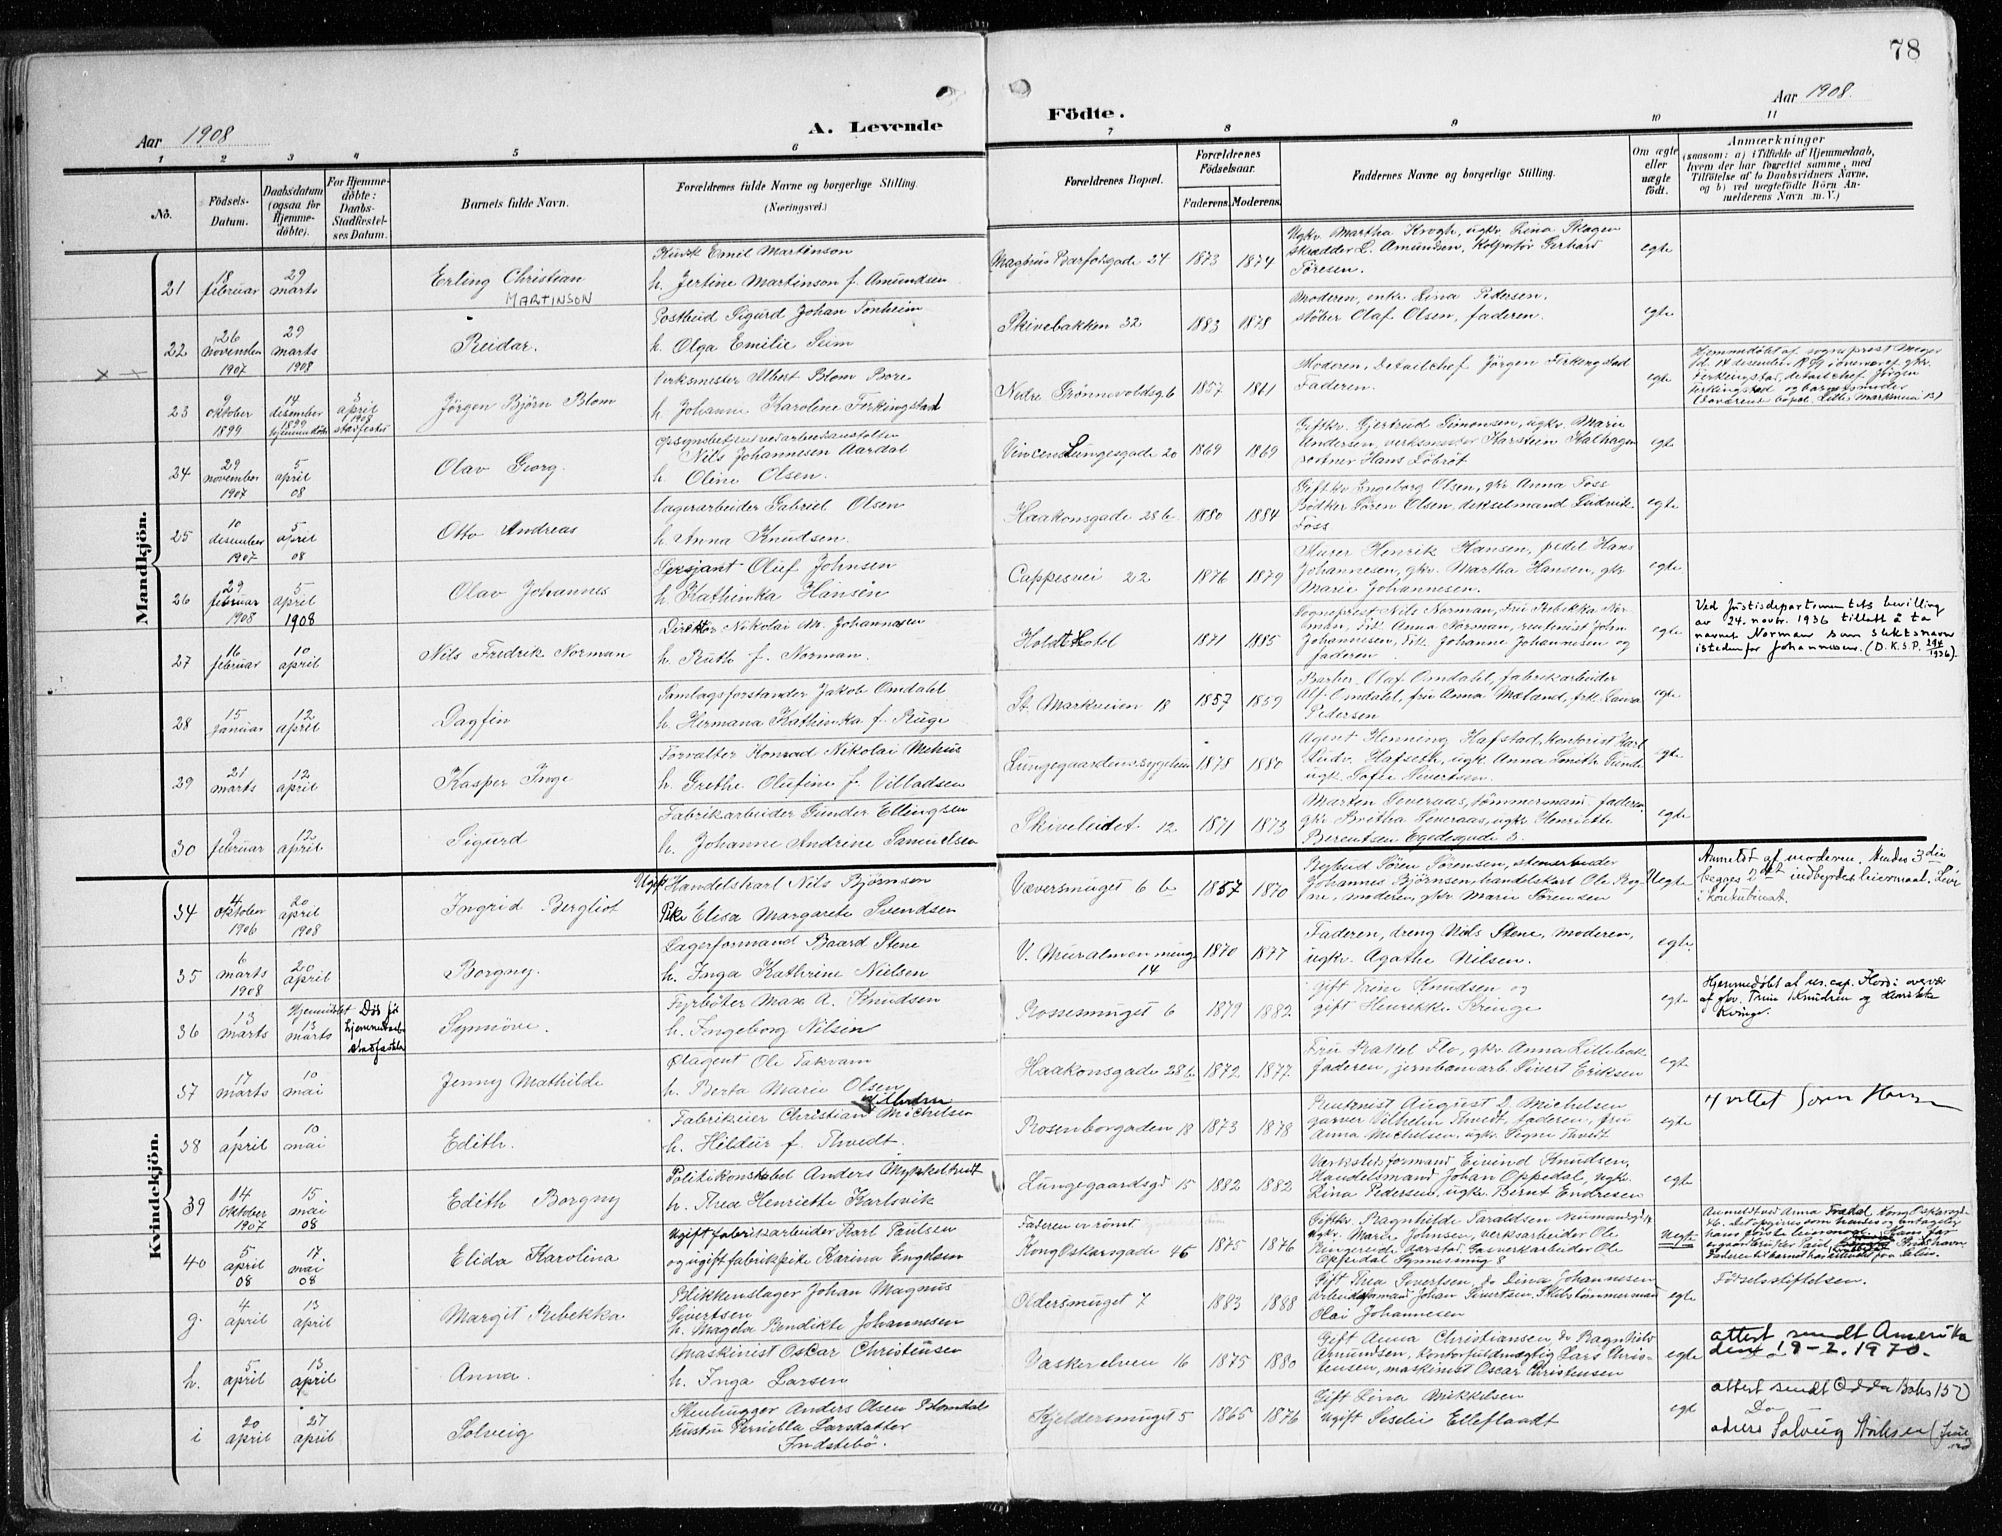 78
Aar 1908
A. Levende
Födte.
Aar 1908.
1 2 3 4 5 6 7 8 9 10 11
No.
Födsels-Datum.
Daabsdatum (ogsaa for Hjemme-döbte).
For Hjemme-döbte: Daabs-Stadfæstel-ses Datum.
Barnets fulde Navn.
Forældrenes fulde Navne og borgerlige Stilling.
(Næringsvei.)
Forældrenes Bopæl.
Forældrenes Födselsaar.
Faderens. Moderens.
Faddernes Navne og borgerlige Stilling.
Om ægte eller uægte födt.
Anmærkninger
(saasom: a) i Tilfælde af Hjemmedaab, hvem der har forrettet samme, med Tilföielse af to Daabsvidners Navne, og b) ved uægtefödte Börn Anmelderens Navn m. V.)
Mandkjön.
21 18 februar 29 marts Erling Christian MARTINSON
Kusk Emil Martinson
h. Jertine Martinson f. Amundsen
24 1873 1874
Ugkv. Martha Krogh, ugkv. Lina Skagen
skrædder L. Amundsen, Kolportør Gerhard
Töresen.
egte
22 26 november 1907 29 marts 1908 Reidar.
Postbud Sigurd Johan Tonheim
h. Olga Emilie Seim
Skivebakken 32 1883 1878
Moderen, enke Lina Pedersen.
støber Olaf Olsen, faderen.
egte
23 9 oktober 1899 14 desember 1899 hjemmedøbt 5 april 1908 stadfestet Jörgen Björn Blom
Verksmester Albert Blom Bore
h. Johanne Karoline Ferkingstad
Nedre Grønnevoldsg 6 1857 1861
Moderen, Detailchef Jörgen Ferkingstad
Faderen.
egte
24 29 november 1907 5 april 08 Olav Georg.
Nils Johannesen Aardal
h. Oline Olsen.
Vincens Lungesgade 20 1869 1869
Giftkv. Gjertrud Simonsen, ugkv. Marie
Andersen, verksmester Karsten Kalhagen
portner Hans Löbröt
egte
25 10 desember 1907 5 april 08 Otto Andreas
Lagerarbeider Gabriel Olsen
h. Anna Knudsen.
Haakonsgade 28 b 1880 1884
Giftkv. Ingeborg Olsen, gkv Anna Foss
Bödker Sören Olsen, dekselmand Ludvik
Foss
egte
26 29 februar 1908 5 april 1908 Olav Johannes
Sersjant Oluf Johnsen
h. Kathinka Hansen
Cappesvei 22 1876 1879
Murer Henrik Hansen, pedel Hans
Johannesen, gkv. Martha Hansen, gkv
Marie Johannesen.
egte
27 16 februar 10 april Nils Fredrik Norman
Direktør Nikolai M. Johannesen
h. Ruth f. Norman.
Holdt Hotel 1871 1885
Sogneprest Nils Norman, fru Rebekka Nor-
man, frk. Anna Norman, rentenist John
Johannesen, frk. Johanne Johannesen og
faderen
egte
Ved Justisdepartementets bevilling
av 24. novbr. 1936 tillatt å ta
navnet Norman som slektsnavn
istedenfor Johannesen. (D.K.S.P. 294/1936).
28 15 januar 12 april Dagfin
Samlagsforstander Jakob Omdahl
h. Hermana Kathinka f. Ruge
St. Markveien 18 1857 1859
Barber Olaf Omdahl, fabrikarbeider
Alf Omdahl, fru Anna Mæland, frk. Laura
Pedersen
egte
29 21 marts 12 april Kasper Inge
Forvalter Konrad Nikolai Mehus
h. Grethe Olufine f. Villadsen
1878 1880
Agent Henning Hafstad, Kontorist Karl
egte
30 9 februar 12 april Sigurd
Fabrikarbeider Gunder Ellingsen
h. Johanne Andrine Samuelsen
Skiveleidet 12 1871 1873
Marten Severaas, tømmermand, faderen,
gkv Britha Severaas, ugkv Henriette
Berentsen Egedesgade 3.
egte
Kvindekjön.
34 4 oktober 1906 20 april 1908 Ingrid Bergliot
Ugift Handelskarl Nils Björnson
Pike Elisa Margarete Svendsen
Væversmuget 6 b 1857 1870
Bybud Sören Sörensen, stenarbeider
Johannes Björnsen, handelskarl Ole Rog-
ne, moderen, gkv. Marie Sörensen
Uegte
Anmeldt af moderen. Hendes 3die
begges 2det indbyrdes leiermaal. Lever
i konkubinat.
35 6 marts 1908 20 april Borgny.
Lagerformand Baard Stene
h. Inga Kathrine Nielsen
V. Muralmenning 14 1870 1877
Faderen, dreng Nils Stene, moderen,
ugkv. Agathe Nilsen.
egte.
36 13 marts Hjemmedøbt 13 marts Synnöve.
Fyrbøter Max A. Knudsen
h. Ingeborg Nilsen
Rossesmuget 6 1879 1882
Gift Trine Knudsen og
Gift Henrikke Kvinge
egte
37 17 marts 10 mai Jenny Mathilde
Ølagent Ole Takvam
h. Berta Marie Olsen
Haakonsgade 28 b 1872 1877
Fru Rakel Flo, gkv. Anna Lillebak
faderen, jernbanearb Sivert Eriksen
egte
38 1 april 10 mai Edith.
Fabrikeier Christian Michelsen
h. Hildur f. Thvedt.
Rosenborgaden 18 1873 1878
Rentenist August D. Michelsen
garver Vilhelm Thvedt, faderen, fru
Anna Michelsen, ugkv. Signe Thvedt
egte
39 14 oktober 1907 15 mai 08 Edith Borgny
Politikonstabel Anders Myrkeltvedt
h. Thea Henriette Karlsvik
Lungegaardsgd 15 1882 1882
Verkstedsformand Eivind Knudsen,
Handelsmand Johan Oppedal, ugkv.
Lina Pedersen, ugkv. Bernt Endresen
egte
40 5 april 08 17 mai 08 Elida Karolina
Ugift fabrikarbeider Karl Paulsen
og ugift fabrikpike Karina Engelsen
Faderen er römt
Kong Oskarsgade 46 1875 1876
Giftkv. Ragnhilde Taraldsen
ugkv. Marie Johnsen, verksarbeider Ole
Ringereide Aarstad, Gasverkarbeider Ole
Oppedal
Uegte
g. 4 april 13 april Margit Rebekka
Blikkenslager Johan Magnus
Sivertsen
h. Magda Bendikte Johannesen
Oldersmuget 7 1883 1888
Gift Thea Sivertsen, do Dina Johannesen
arbeidsmand Johan Sivertsen, Skibstømmermand
Olai Johannesen
egte
Födselsstiftelsen.
h. 5 april 13 april Anna.
Maskinist Oscar Christensen
h. Inga Larsen
Vaskerelven 16 1875 1880
Gift Anna Christiansen, do Ragnhild
Amundsen, kontorfuldmægtig Lars Chris-
tensen, maskinist Oscar Christensen
egte
attest sendt Amerika
den 19-2.1970.
i 20 april 27 april Solveig
Stenhugger Anders Olsen Blomdal
hustru Pernella Larsdatter
Indstebö.
Kjeldersmuget 5 1865 1876
Gift Lina Mikkelsen
ugift Seselie Elleflaadt
egt
attest sendt Odda
Do